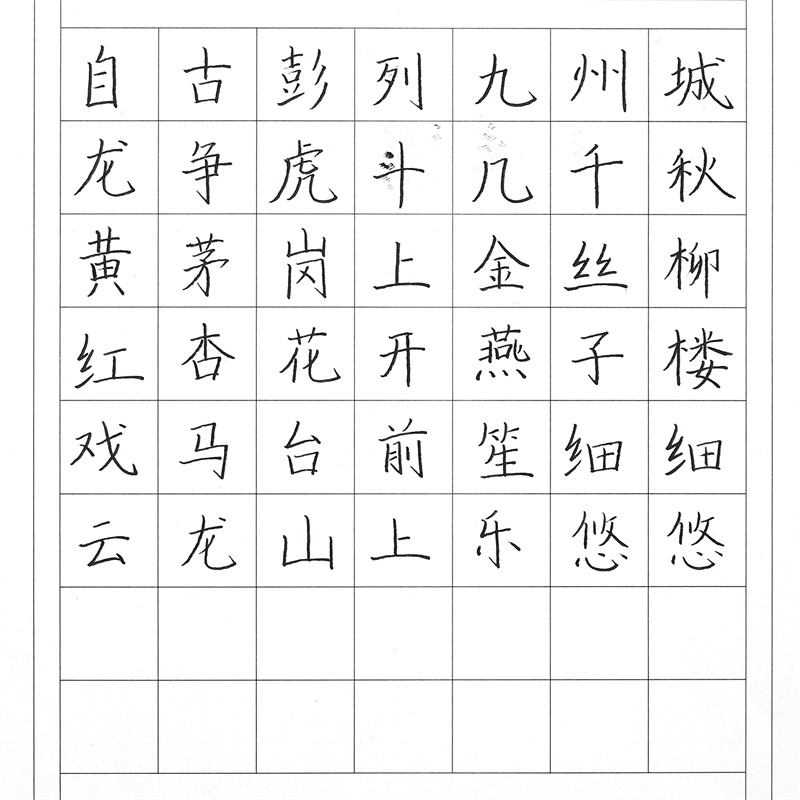 自古彭列九州城
龙争虎斗几千秋
黄茅岗上金丝柳
红杏花开燕子楼
戏马台前笙细细
云龙山上乐悠悠